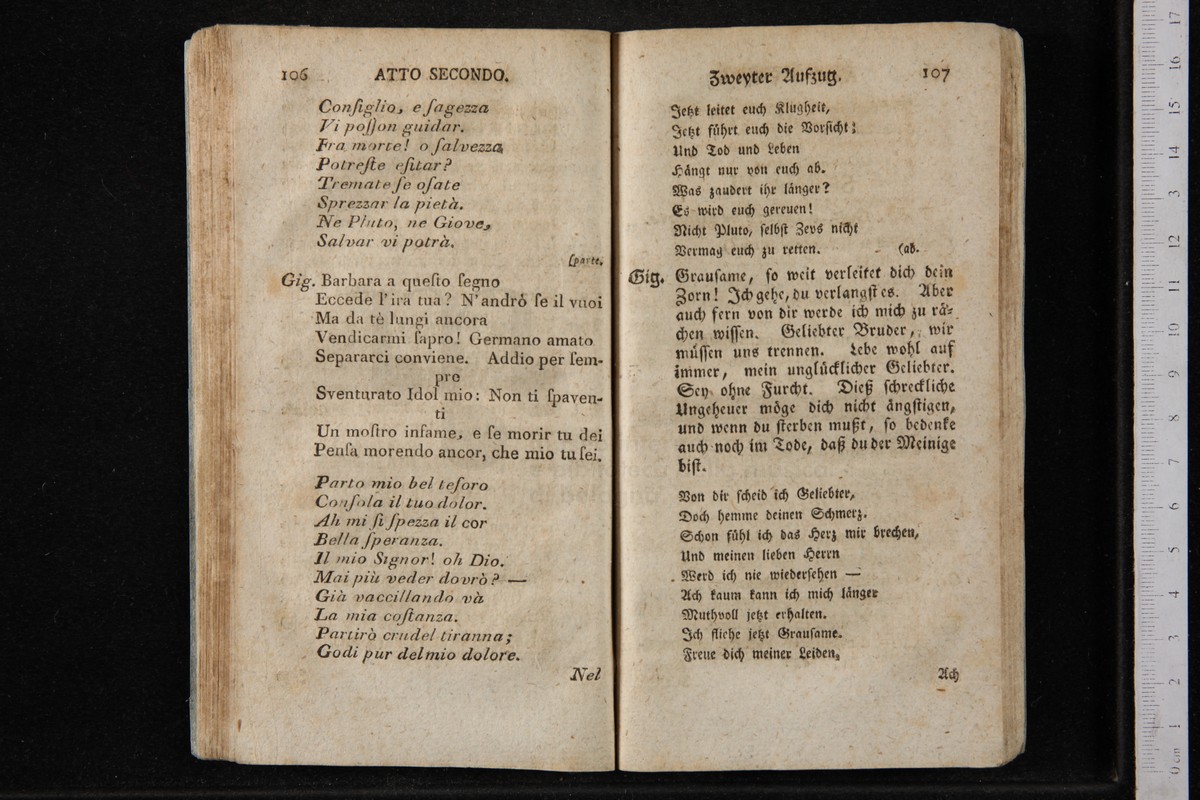 106 ATTO SECONDO.
Conſiglio, e ſagezza
Vi poſſon guidar.
Fra morte! o ſalvezza
Potreſte eſitar?
Tremate ſe oſate
Sprezzar la pietà.
Ne Pluto, ne Giove,
Salvar vi potrà.
[parte.
Gig. Barbara a queſto ſegno
Eccede l'ira tua? N'andró ſe il vuoi
Ma da tè lungi ancora
Vendicarmi ſapro! Germano amato
Separarci conviene. Addio per ſem-
pre
Sventurato Idol mio: Non ti ſpaven-
ti
Un moſtro infame, e ſe morir tu dei
Penſa morendo ancor, che mio tu ſei.
Parto mio bel teſoro
Conſola il tuo dolor.
Ah mi ſi ſpezza il cor
Bella ſperanza.
Il mio Signor! oh Dio.
Mai più veder dovrò? —
Già vaccillando và
La mia coſtanza.
Partirò crudel tiranna;
Godi pur del mio dolore.
Nel
Zweyter Aufzug. 107
Jetzt leitet euch Klugheit,
Jetzt führt euch die Vorſicht;
Und Tod und Leben
Hängt nur von euch ab.
Was zaudert ihr länger?
Es wird euch gereuen!
Nicht Pluto, ſelbſt Zevs nicht
Vermag euch zu retten. (ab.
Gig. Grauſame, ſo weit verleitet dich dein
Zorn! Ich gehe, du verlangſt es. Aber
auch fern von dir werde ich mich zu rä-
chen wiſſen. Geliebter Bruder, wir
müſſen uns trennen. Lebe wohl auf
immer, mein unglücklicher Geliebter.
Sey ohne Furcht. Dieß ſchreckliche
Ungeheuer möge dich nicht ängſtigen,
und wenn du ſterben mußt, ſo bedenke
auch noch im Tode, daß du der Meinige
biſt.
Von dir ſcheid ich Geliebter,
Doch hemme deinen Schmerz.
Schon fühl ich das Herz mir brechen,
Und meinen lieben Herrn
Werd ich nie wiederſehen —
Ach kaum kann ich mich länger
Muthvoll jetzt erhalten.
Ich fliehe jetzt Grauſame.
Freue dich meiner Leiden,
Ach
0 cm 1 2 3 4 5 6 7 8 9 10 11 12 13 14 15 16 17